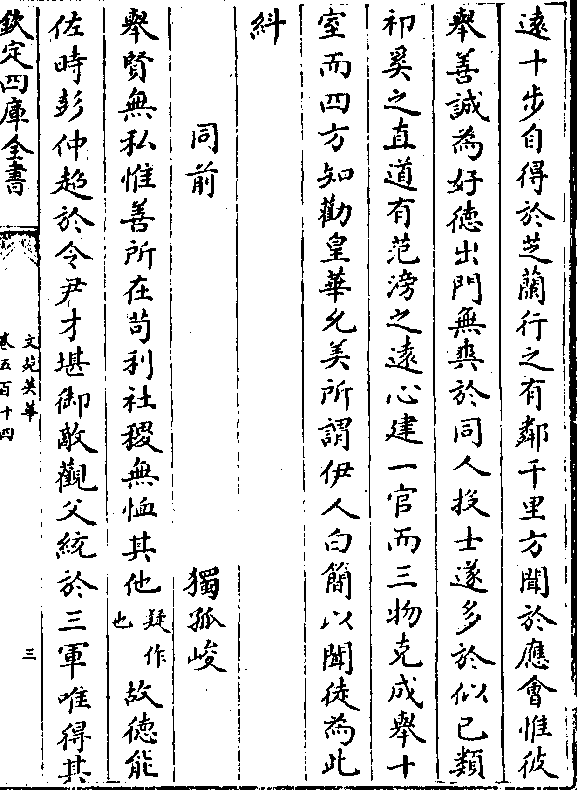 遠十步自得於芝蘭行之有鄰千里方聞於應會惟彼
舉善誠為好徳出門無爽於同人投士遂多於似已類
祁奚之直道有范滂之遠心建一官而三物克成舉十
室而四方知勸皇華允美所謂伊人白簡以聞徒為此
糾
同前
獨孤峻
舉賢無私惟善所在苟利社稷無恤其他疑作也故徳能
佐時彭仲超於令尹才堪御敵觀父統於三軍唯得其
欽定四庫全書
文苑英華
卷五百十四
三